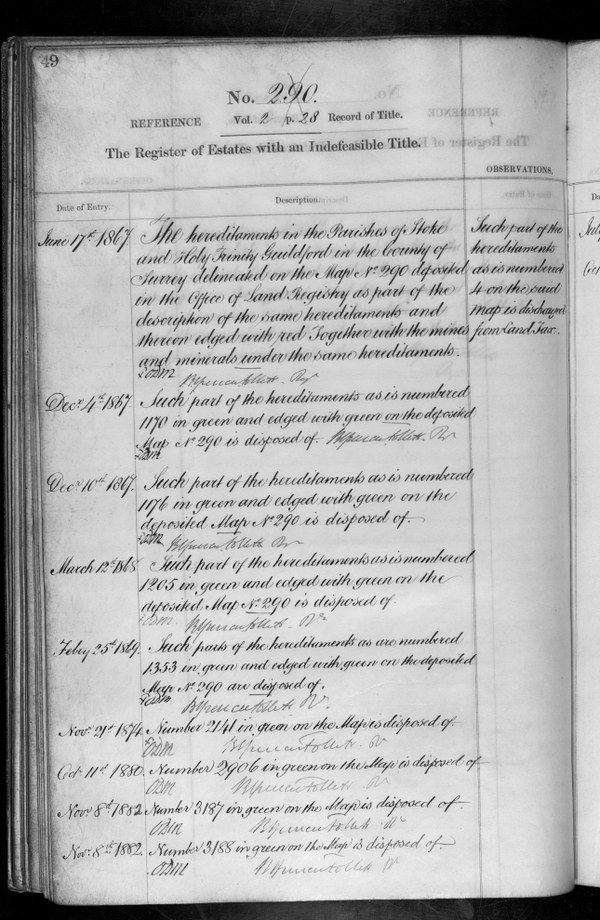 49
No. 290.
REFERENCE Vol. 2 p. 28 Record of Title.
The Register of Estates with an Indefeasible Title.
OBSERVATIONS.
Date of Entry. Description.
June 17th 1867. The hereditaments in the Parishes of Stoke
and Holy Trinity Guildford in the County of
Surrey delineated on the Map No 290 deposited
in the Office of Land Registry as part of the
description of the same hereditaments and
thereon edged with red Together with the mines
and minerals under the same hereditaments.
Such part of the
hereditaments
as is numbered
4 on the said
map is discharged
from Land Tax.
Brent Spencer Follett Rr
Decr 4th 1867. Such part of the hereditaments as is numbered
1170 in green and edged with green on the deposited
Map No 290 is disposed of.
Decr 10th 1867. Such part of the hereditaments as is numbered
1176 in green and edged with green on the
deposited Map No 290 is disposed of.
March 12th 1868. Such part of the hereditaments as is numbered
1205 in green and edged with green on the
deposited Map No 290 is disposed of.
Febry 25th 1869. Such parts of the hereditaments as are numbered
1353 in green and edged with green on the deposited
Map No 290 are disposed of.
Novr 21st 1874. Number 2141 in green on the Map is disposed of
Octr 11th 1880. Number 2906 in green on the Map is disposed of
Novr 8th 1882 Number 3187 in green on the Map is disposed of
ODM
Novr 8th 1882. Number 3188 in green on the Map is disposed of.
ODM